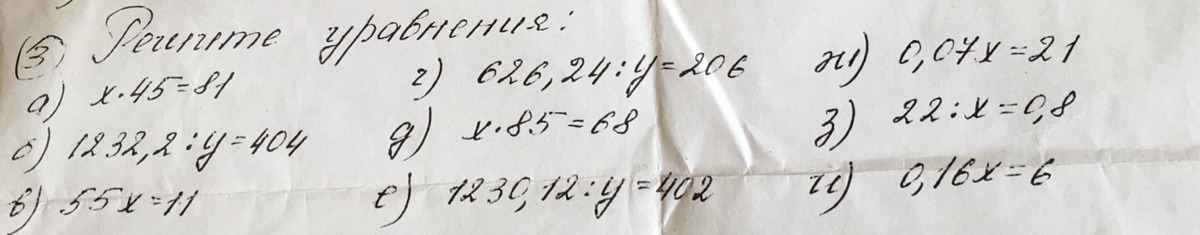 3) Решите уравнения:
а) x·45=81
б) 1232,2:y=404
в) 55x=11
г) 626,24:y=206
д) x·85=68
е) 1230,12:y=402
ж) 0,07x=21
з) 22:x=0,8
и) 0,16x=6